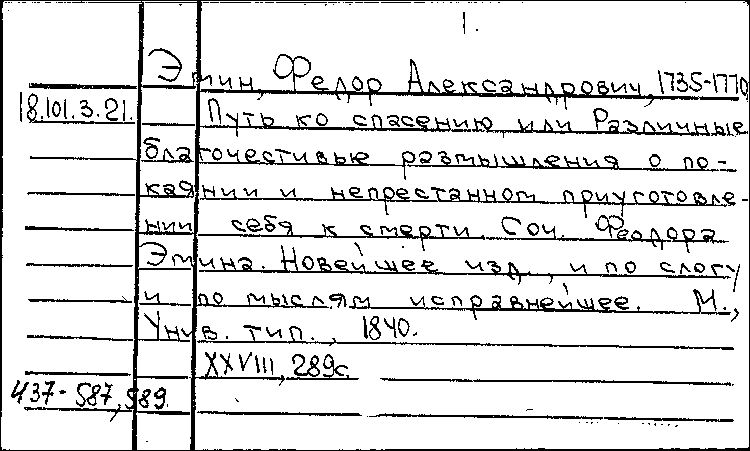 1.
Эмин, Федор Александрович, 1735-1770
18.101.3.21. Путь ко спасению, или Различные
благочестивые размышления о по-
каянии и непрестанном приуготовле-
нии себя к смерти. Соч. Феодора
Эмина. Новейшее изд., и по слогу
и по мыслям исправнейшее. М.,
Унив. тип., 1840.
XXVIII, 289с.
437-587, 589